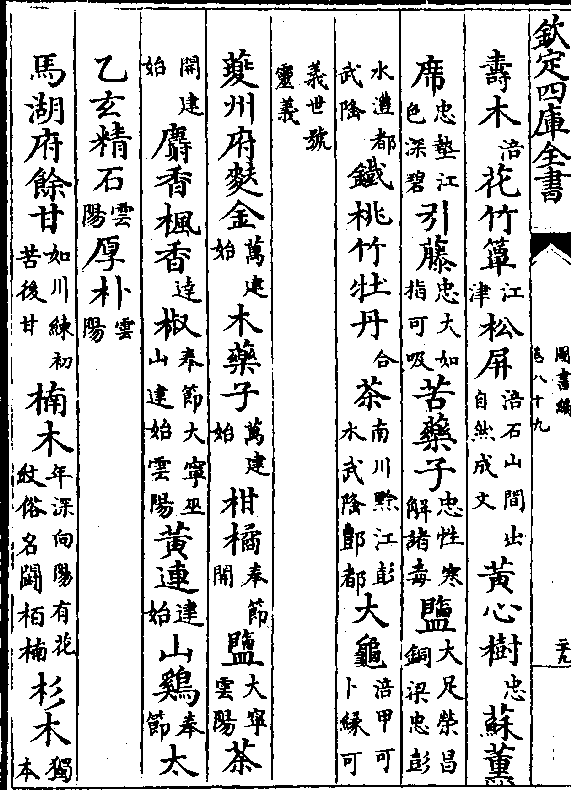 欽定四庫全書
圖書編
卷八十九
二十九
壽木涪花竹簟江津松屏涪石山間出自然成文黃心樹忠蘇薫
席忠墊江色深碧引藤忠大如指可吸苦藥子忠性寒解諸毒鹽大足榮昌銅梁忠彭
水澧都武隆鐵桃竹牡丹合茶南川黔江彭水武隆酆都大龜涪甲可卜緣可
義世號靈義
夔州府麩金萬建始木藥子萬建始柑橘奉節開鹽大寧雲陽茶
開建始麝香楓香逹椒奉節大寧巫山建始雲陽黃連建始山鷄奉節太
乙玄精石雲陽厚朴雲陽
馬湖府餘甘如川練初苦後甘楠木年深向陽有花紋俗名鬬栢楠杉木獨本